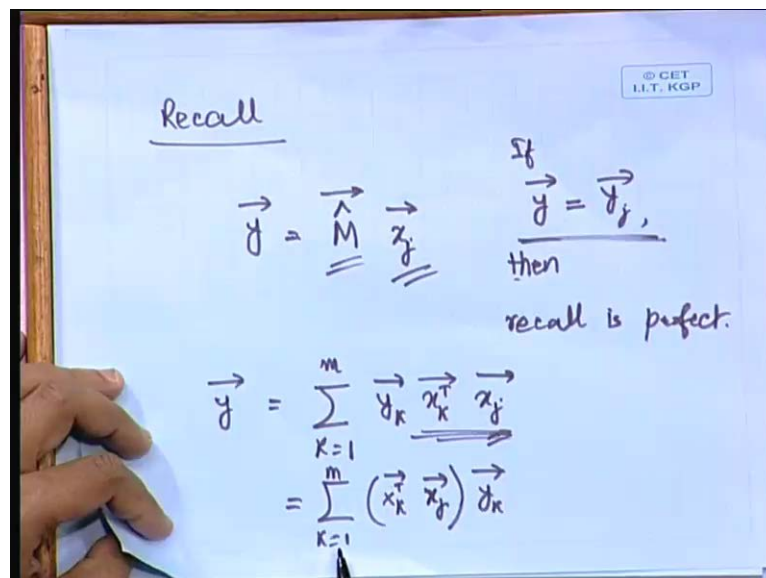 © CET
I.I.T. KGP
Recall
y⃗ = M̂⃗ x⃗ⱼ
If
y⃗ = y⃗ⱼ,
then
recall is perfect.
y⃗ = ∑_{K=1}^{m} y⃗_K x⃗_K^T x⃗_j
= ∑_{K=1}^{m} (x⃗_K^T x⃗_j) y⃗_K